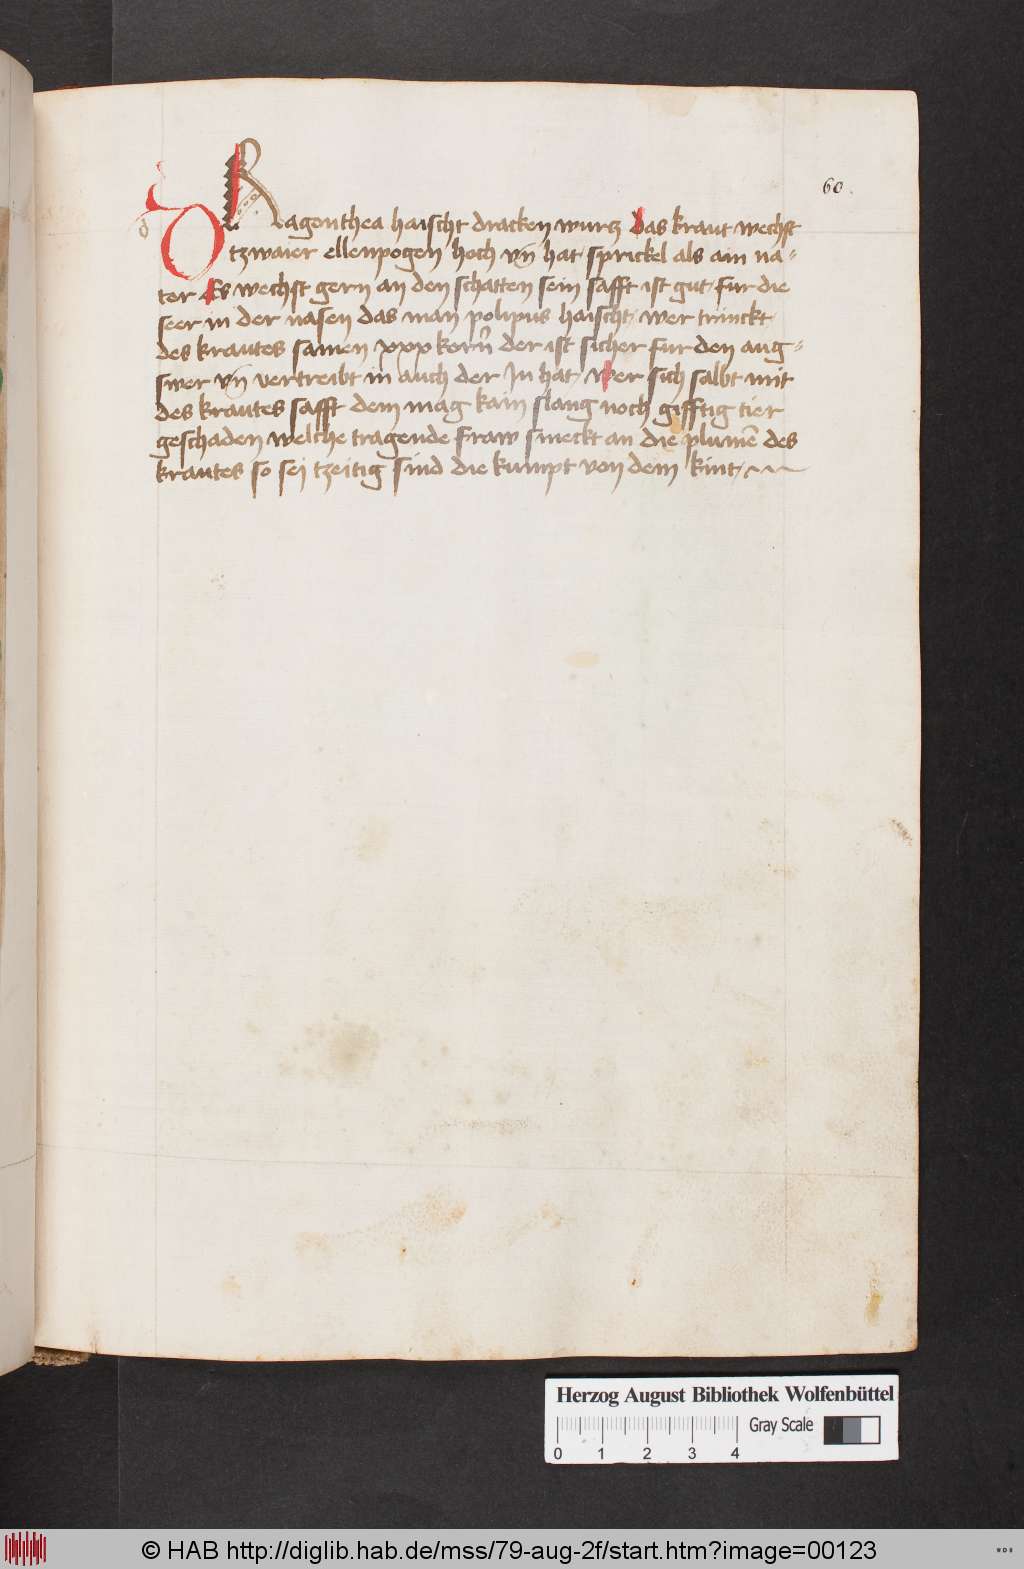 60
d
DRagonthea haischt dracken wurz das kraut wechst
tzwaier ellenpogen hoch vn̄ hat sprickel als ain na⸗
ter Es wechst gern an den schatten sein safft ist gut fur die
seer in der nasen das man polipus haischt wer trinckt
des krautes samen xxx korn̄ der ist sicher fur den aug⸗
swer vn̄ vertreibt in auch der In hat wer sich salbt mit
des krautes safft dem mag kain slang noch gifftig tier
geschaden welche tragende fraw smeckt an die plumē des
krautes so sei tzeitig sind die kumpt von dem kint
Herzog August Bibliothek Wolfenbüttel
0 1 2 3 4 Gray Scale
© HAB http://diglib.hab.de/mss/79-aug-2f/start.htm?image=00123